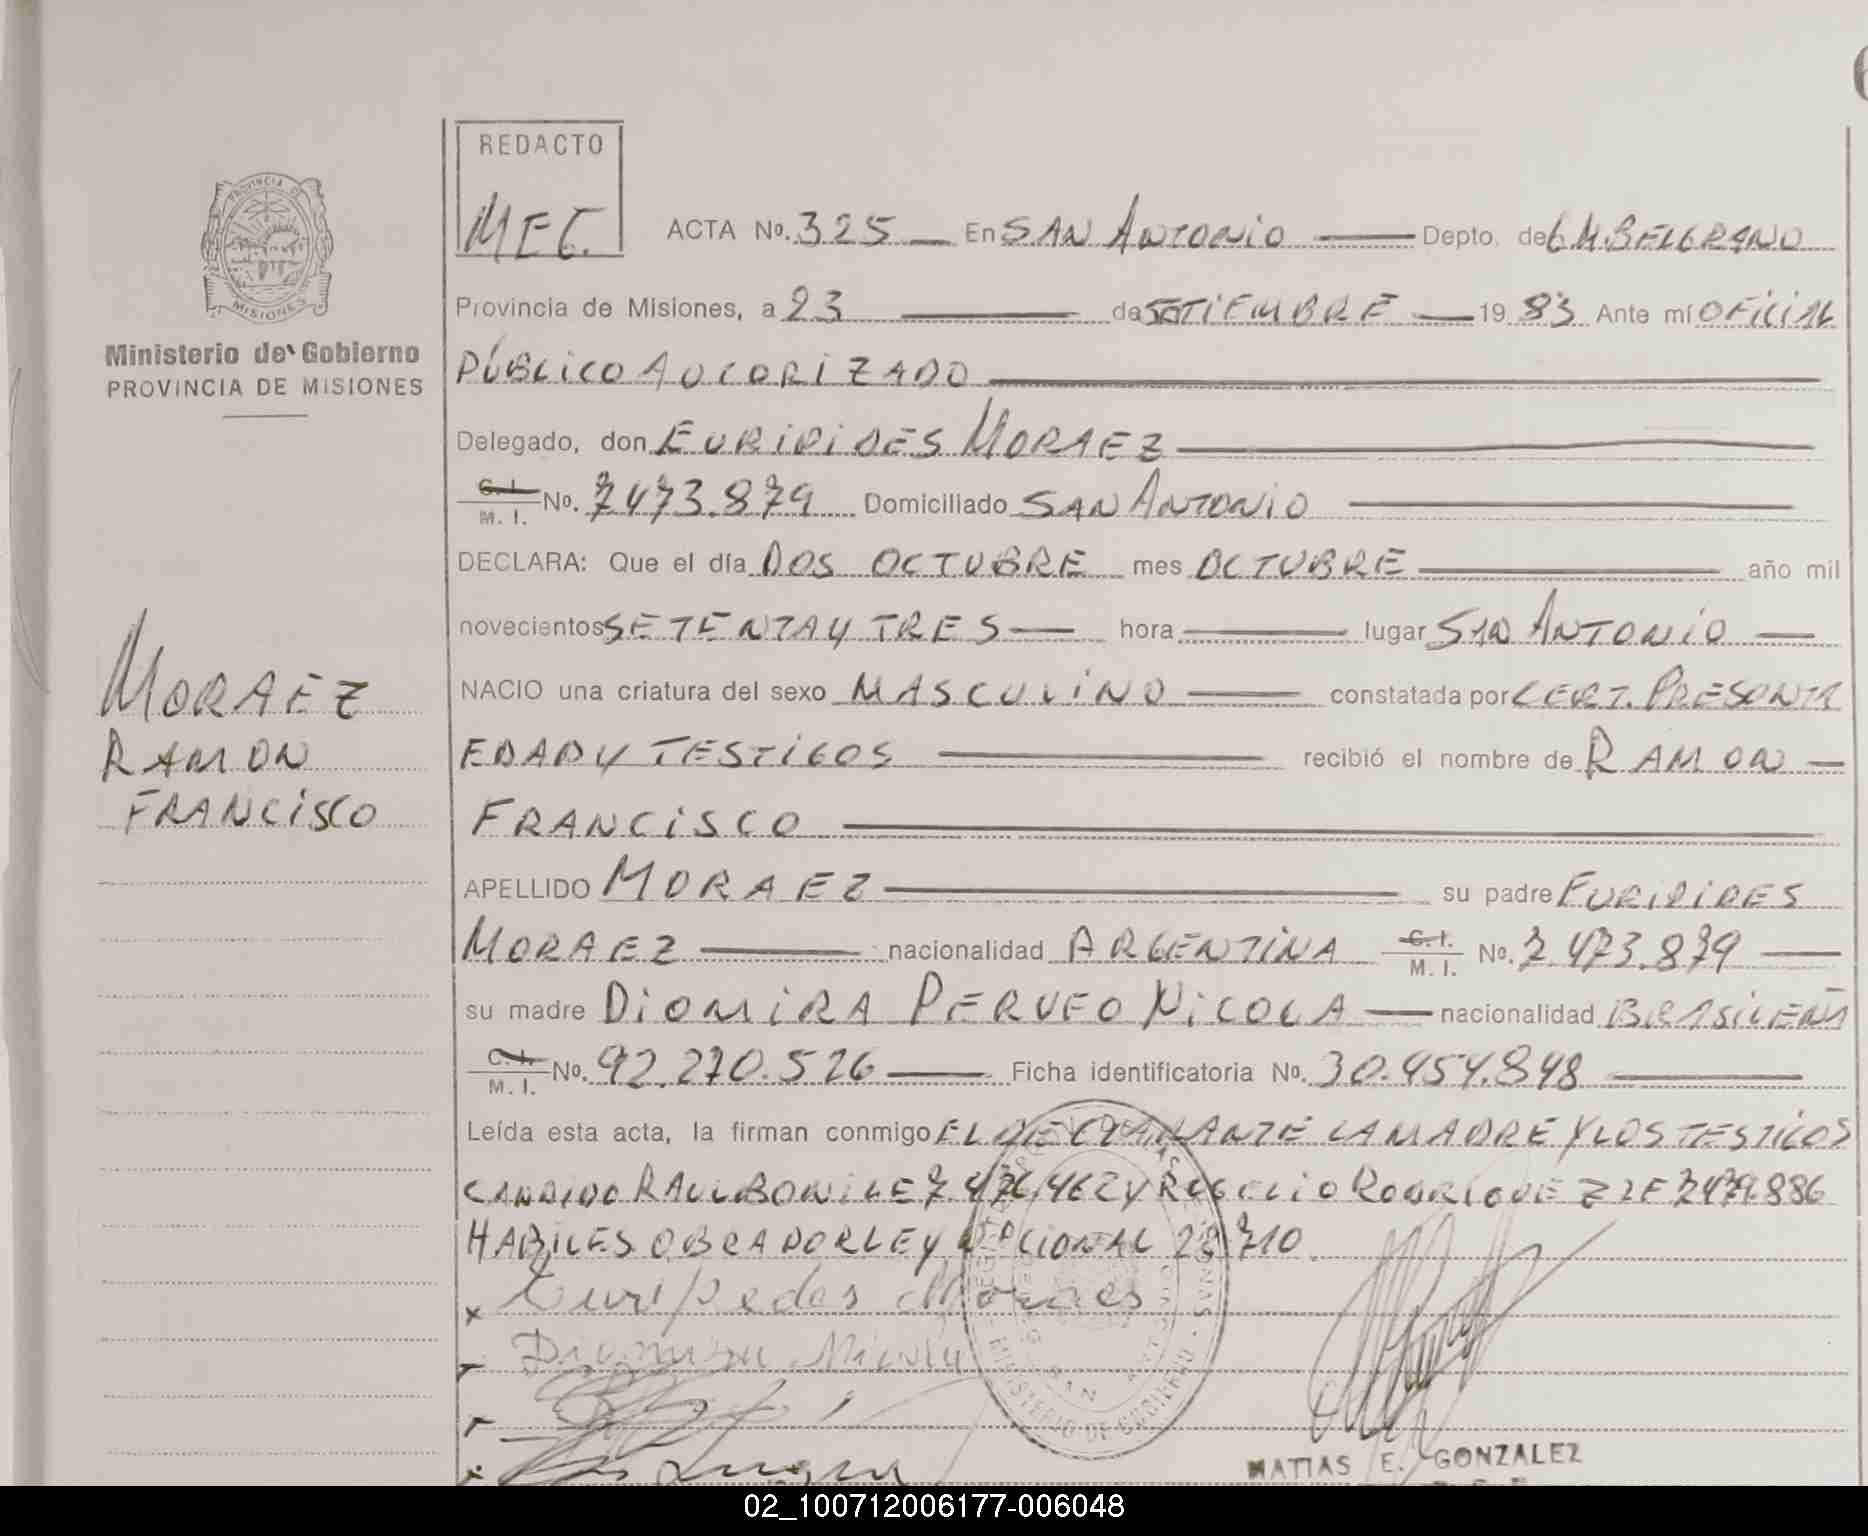 REDACTO
MEG.
ACTA No. 325 En SAN ANTONIO Depto. de G.M.BELGRANO
Provincia de Misiones, a 23 de SETIEMBRE 1983 Ante mí OFICIAL
PÚBLICO AUTORIZADO
Delegado, don EURIPIDES MORAEZ
C. I. M. I. No. 7473.879 Domiciliado SAN ANTONIO
DECLARA: Que el día DOS OCTUBRE mes OCTUBRE año mil
novecientos SETENTA Y TRES hora lugar SAN ANTONIO
NACIO una criatura del sexo MASCULINO constatada por CERT. PRESUNTA
EDAD Y TESTIGOS recibió el nombre de RAMON
FRANCISCO
APELLIDO MORAEZ su padre EURIPIDES
MORAEZ nacionalidad ARGENTINA C. I. M. I. No. 7.473.879
su madre DIOMIRA PERUFO NICOLA nacionalidad BRASILEÑA
C. I. M. I. No. 92.270.526 Ficha identificatoria No. 30.454.848
Leída esta acta, la firman conmigo EL DECLARANTE LA MADRE Y LOS TESTIGOS
CANDIDO RAUL BONI LE 7.476.462 Y ROGELIO RODRIGUEZ LE 7479.886
HABILES OBRADOR LEY NACIONAL 28.710
x Euripedes Moraes
Diomira Nicola
MATIAS E. GONZALEZ
PROVINCIA DE
MISIONES
Ministerio de Gobierno
PROVINCIA DE MISIONES
MORAEZ
RAMON
FRANCISCO
MINISTERIO DE GOBIERNO
SAN ANTONIO
02_100712006177-006048